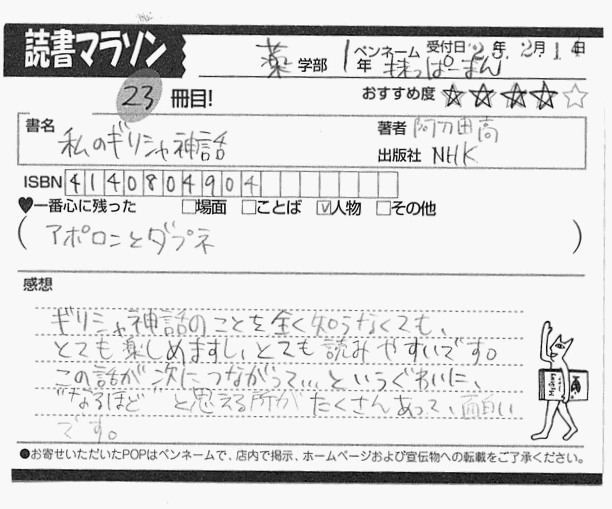 読書マラソン
薬学部 1年 ペンネーム 抹っぱーまん 受付日 23年2月14日
23冊目!
おすすめ度 ★★★★☆
書名 私のギリシャ神話
著者 阿刀田高
出版社 NHK
ISBN 4140804904
♥一番心に残った □場面 □ことば ☑人物 □その他
(アポロンとダプネ)
感想
ギリシャ神話のことを全く知らなくても、
とても楽しめますし、とても読みやすいです。
この話が次につながって...、というぐあいに、
"なるほど"と思える所がたくさんあって、面白い
です。
●お寄せいただいたPOPはペンネームで、店内で掲示、ホームページおよび宣伝物への転載をご了承ください。